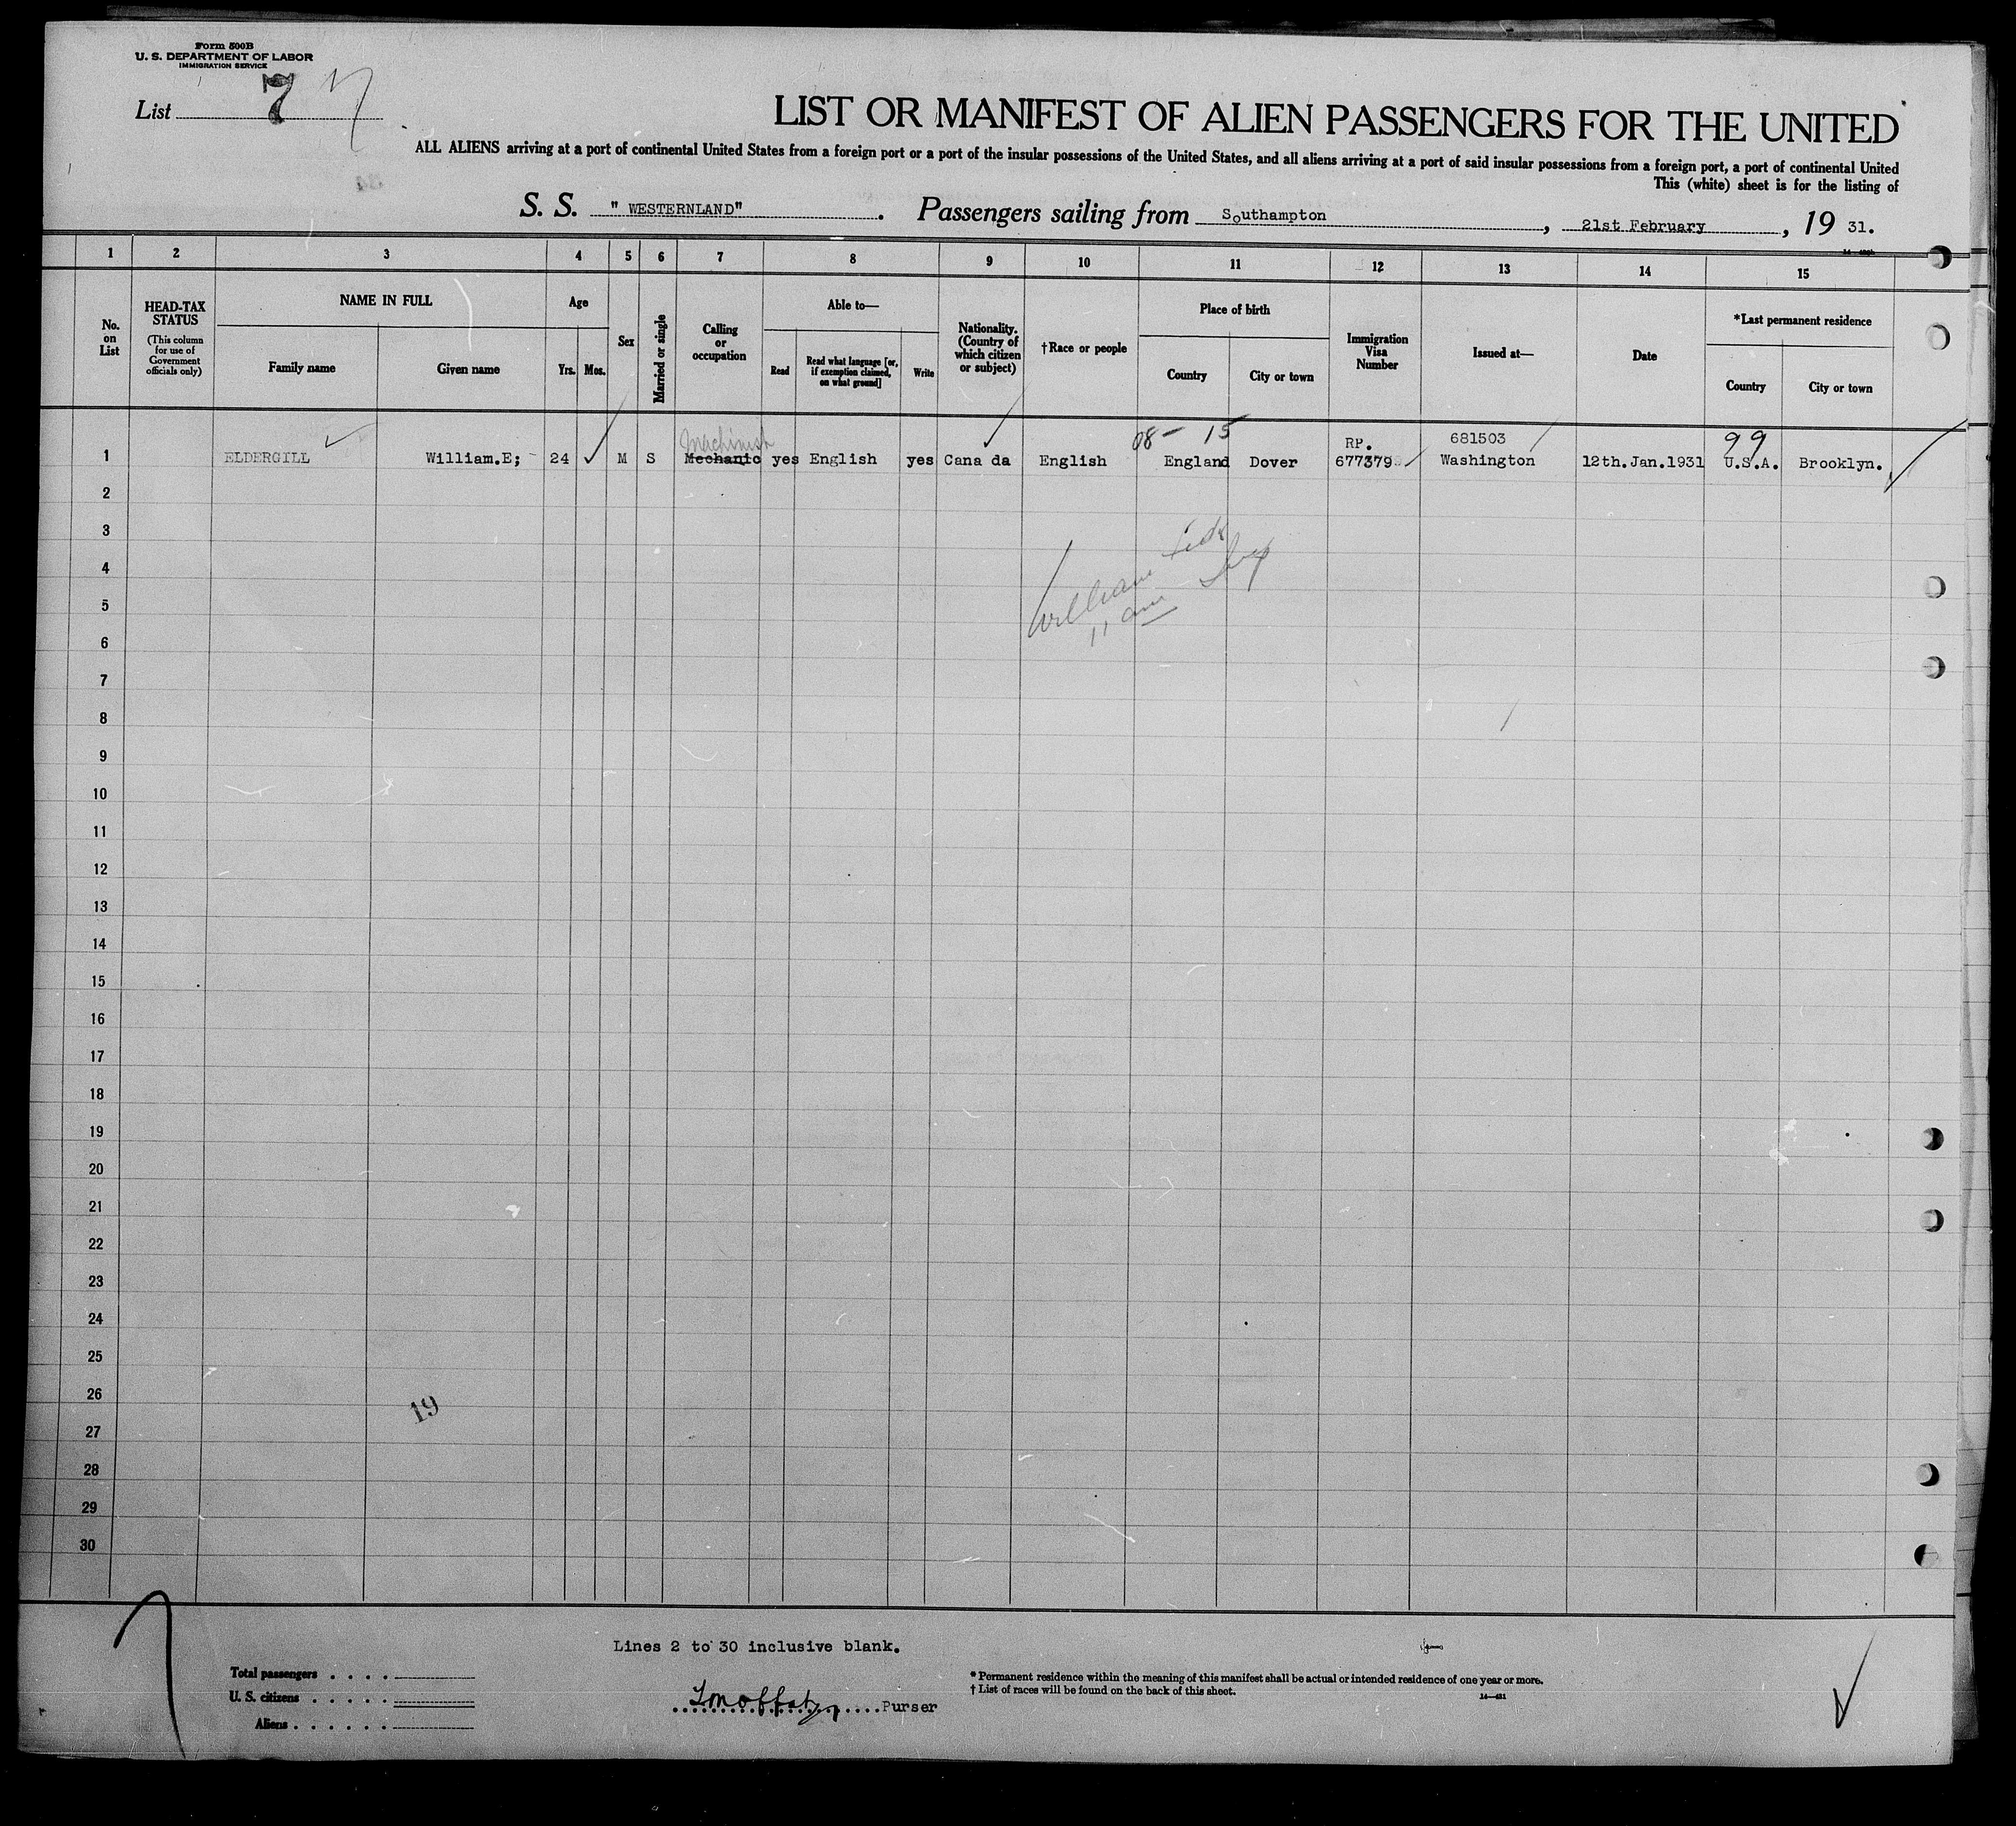 Form 500B
U. S. DEPARTMENT OF LABOR
IMMIGRATION SERVICE
List 7 7
LIST OR MANIFEST OF ALIEN PASSENGERS FOR THE UNITED
ALL ALIENS arriving at a port of continental United States from a foreign port or a port of the insular possessions of the United States, and all aliens arriving at a port of said insular possessions from a foreign port, a port of continental United
This (white) sheet is for the listing of
S. S. " WESTERNLAND" . Passengers sailing from Southampton , 21st February , 19 31.
1 2 3 4 5 6 7 8 9 10 11 12 13 14 15
No. on List
HEAD-TAX STATUS
(This column for use of Government officials only)
NAME IN FULL
Family name
Given name
Age
Yrs.
Mos.
Sex
Married or single
Calling or occupation
Able to—
Read
Read what language [or, if exemption claimed, on what ground]
Write
Nationality. (Country of which citizen or subject)
†Race or people
Place of birth
Country
City or town
Immigration Visa Number
Issued at—
Date
*Last permanent residence
Country
City or town
Machinist 08- 15 RP. 681503 99
1 ELDERGILL William.E; 24 M S Mechanic yes English yes Cana da English England Dover 677379 Washington 12th.Jan.1931 U.S.A. Brooklyn.
2
3
4
William
5
11 am
6
7
8
9
10
11
12
13
14
15
16
17
18
19
20
21
22
23
24
25
26
19
27
28
29
30
7
Lines 2 to 30 inclusive blank.
Total passengers . . . .
U. S. citizens . . . . .
Aliens . . . . . .
Moffat Purser
* Permanent residence within the meaning of this manifest shall be actual or intended residence of one year or more.
† List of races will be found on the back of this sheet.